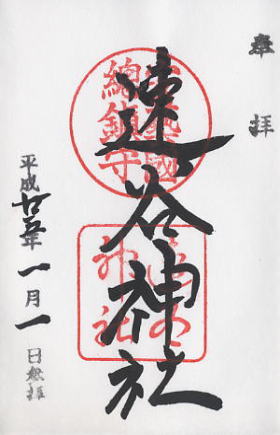 奉拝
速谷神社
安藝國
總鎮守
速谷
神社
平成廿五年一月一日参拝